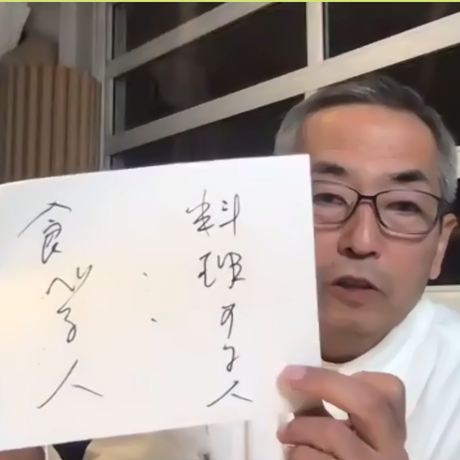 料理する人
食べる人